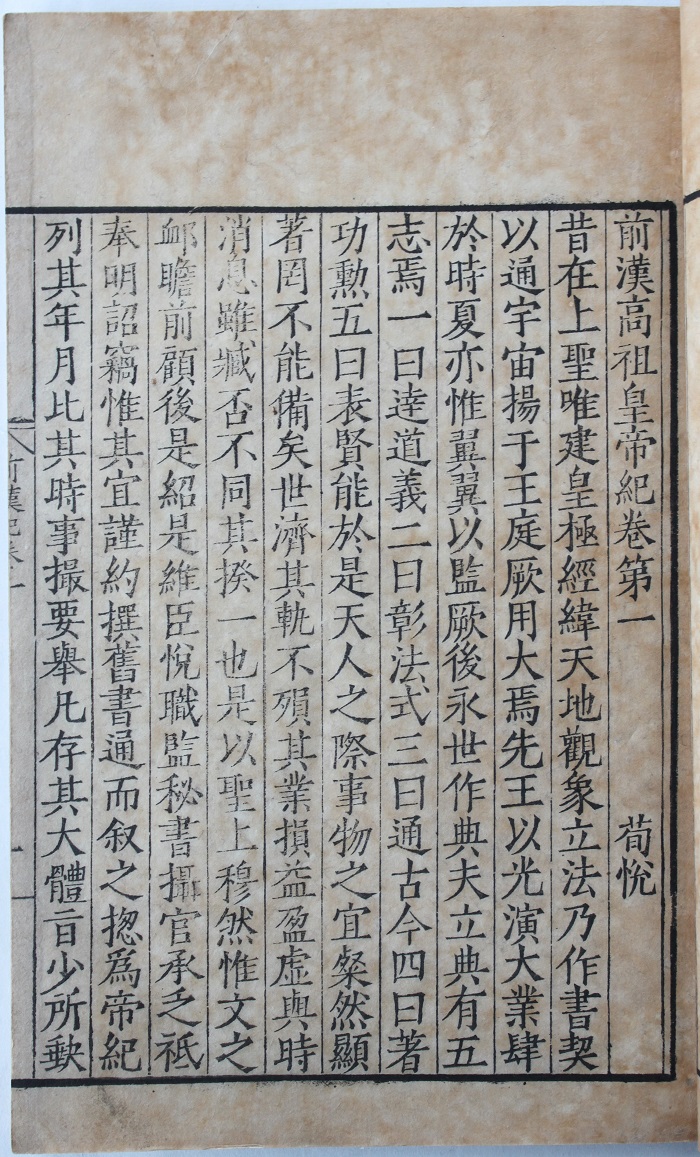 前漢高祖皇帝紀卷第一 荀悅
昔在上聖唯建皇極經緯天地觀象立法乃作書契
以通宇宙揚于王庭厥用大焉先王以光演大業肆
於時夏亦惟翼翼以監厥後永世作典夫立典有五
志焉一曰逹道義二曰彰法式三曰通古今四曰著
功勲五曰表賢能於是天人之際事物之宜粲然顯
著罔不能備矣世濟其軌不殞其業損益盈虛與時
消息雖臧否不同其揆一也是以聖上穆然惟文之
䘏瞻前顧後是紹是維臣悅職監秘書攝官承乏祗
奉明詔竊惟其宜謹約撰舊書通而叙之揔爲帝紀
列其年月比其時事撮要舉凡存其大體旨少所缺
前漢紀卷一
一